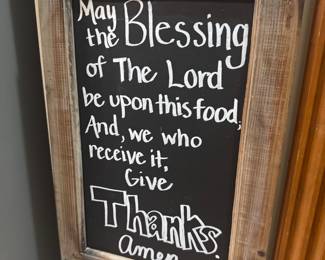 May
the Blessing
of The Lord
be upon this food,
And, we who
receive it,
Give
Thanks.
amen